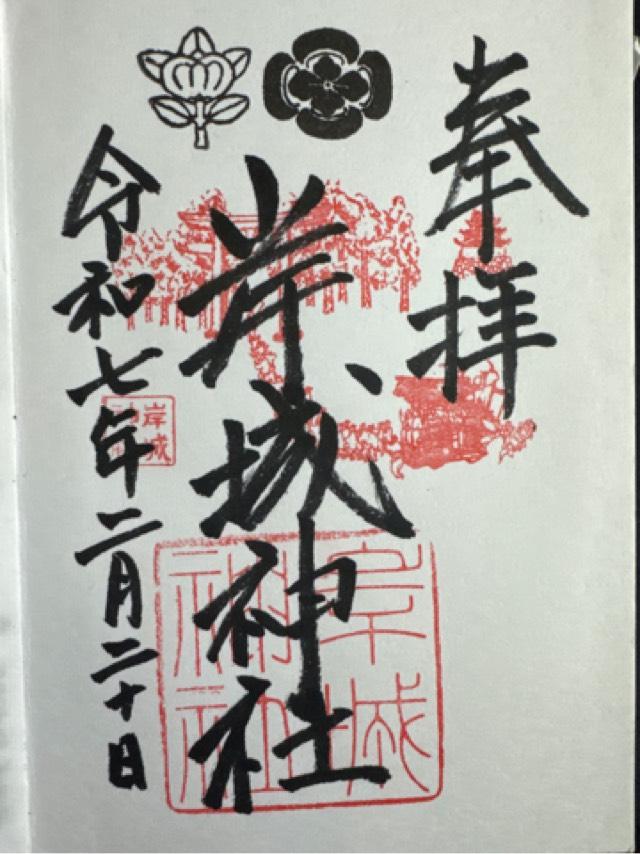 奉拝
岸城神社
令和七年二月二十日
岸城
神社
岸城
神社